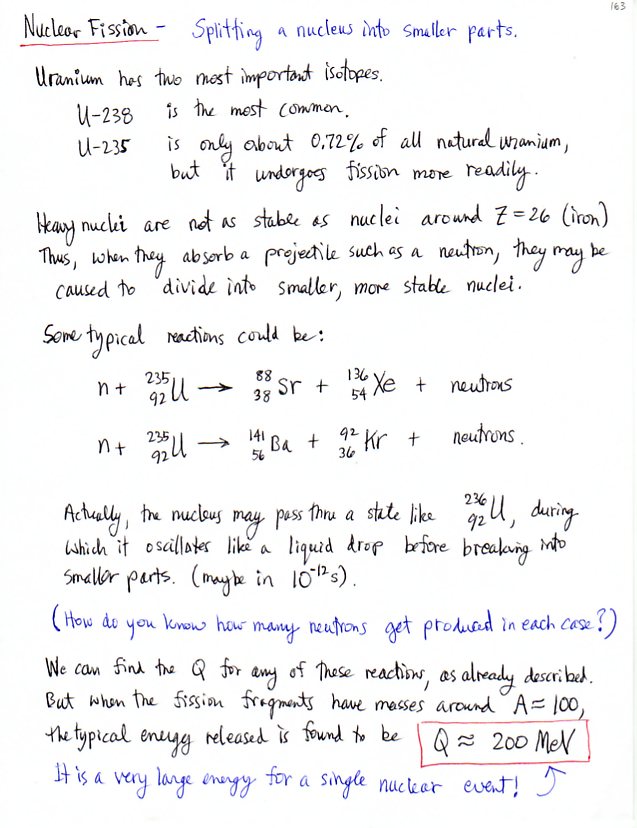 163
Nuclear Fission - Splitting a nucleus into smaller parts.
Uranium has two most important isotopes.
U-238 is the most common.
U-235 is only about 0.72% of all natural uranium,
but it undergoes fission more readily.
Heavy nuclei are not as stable as nuclei around Z=26 (iron)
Thus, when they absorb a projectile such as a neutron, they may be
caused to divide into smaller, more stable nuclei.
Some typical reactions could be:
n + ²³⁵₉₂U → ⁸⁸₃₈Sr + ¹³⁶₅₄Xe + neutrons
n + ²³⁵₉₂U → ¹⁴¹₅₆Ba + ⁹²₃₆Kr + neutrons.
Actually, the nucleus may pass thru a state like ²³⁶₉₂U, during
which it oscillates like a liquid drop before breaking into
smaller parts. (maybe in 10⁻¹²s).
(How do you know how many neutrons get produced in each case?)
We can find the Q for any of these reactions, as already described.
But when the fission fragments have masses around A≈100,
the typical energy released is found to be Q ≈ 200 MeV
It is a very large energy for a single nuclear event!